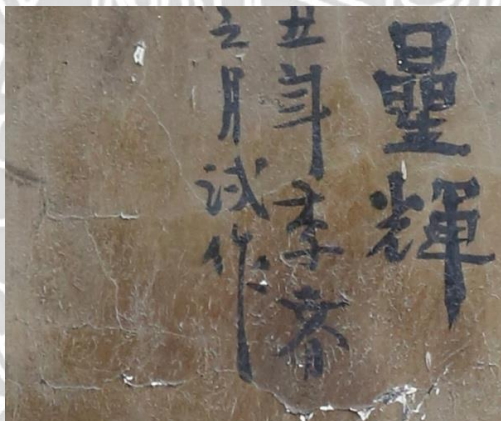 輝
丑年季春
之月試作